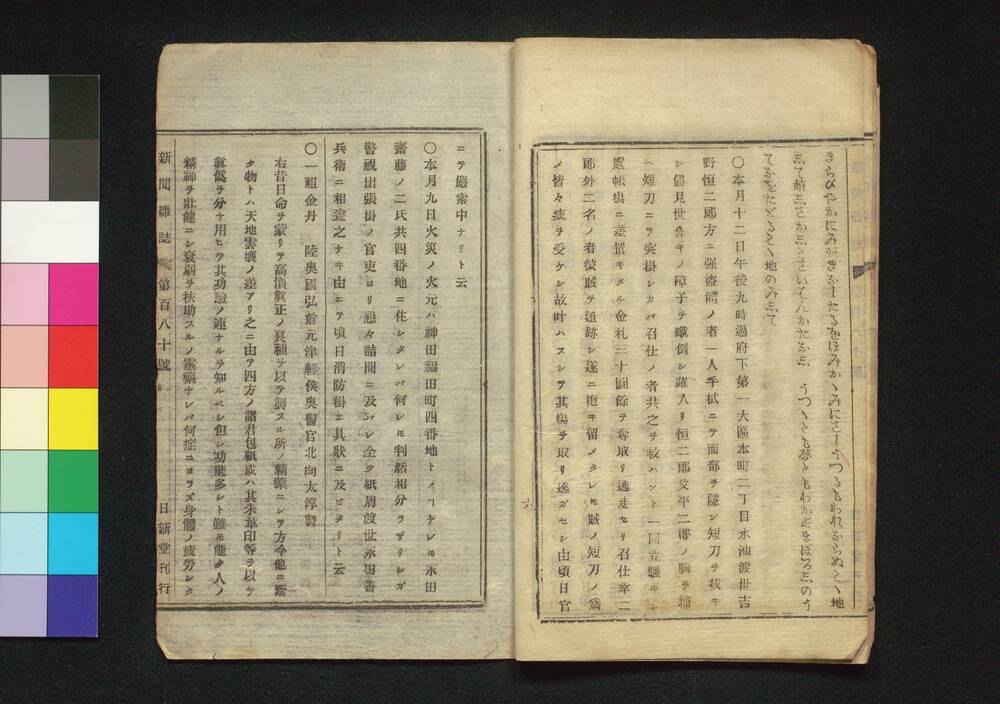 きらびやかにみがきなしたるをほみかゝみにさしうつるもわれならぬこゝ地
して嬉しさかしこさいはんかたなし うつゝとも夢ともわかぬまぼろしのう
てなをたどるこゝ地のみして
〇本月十二日午後九時過府下第一大區本町二丁目水油渡世吉
野恒二郎方エ強盗體ノ者一人手拭ニテ面部ヲ隱シ短刀ヲ拔キ
シ儘見世先キノ障子ヲ蹴倒シ躍入リ恒二郎父平二郎ノ胸ヲ捕
ヘ短刀ニテ突掛シカバ召仕ノ者共之ヲ救ハント一同立騷キシ
處帳塲ニ差置キタル金札三十圓餘ヲ奪取リ逃走セリ召仕幸二
郎外二名ノ者彼賊ヲ追跡シ遂ニ抱キ留メタレ𪜈賊ノ短刀ノ爲
メ皆々疵ヲ受ケシ故叶ハズシテ其塲ヲ取リ逃ガセシ由頃日官
六
ニテ嚴索中ナリト云
〇本月九日火災ノ火元ハ神田福田町四番地トイフナレ𪜈永田
齋藤ノ二氏共四番地ニ住シタレバ何レ𪜈判然相分ラザリシガ
警視出張掛ノ官吏ヨリ懸々詰問ニ及バレ全ク紙屑渡世永田善
兵衛ニ相違之ナキ由ニテ頃日消防掛エ其狀ニ及ビタリト云
〇一粗金丹 陸奥國弘前元津輕侯奥醫官北向太淳製
右昔日命ヲ蒙リテ高價眞正ノ良種ヲ以テ製スル所ノ精藥ニシテ方今他ニ鬻
ク物トハ天地雲壤ノ差アリ之ニ由テ四方ノ諸君包紙或ハ其朱章印等ヲ以テ
眞僞ヲ分ケ用ヒテ其功驗ノ速ナルヲ知ルベシ但シ功能多シト雖𪜈能ク人ノ
精神ヲ壯健ニシ衰弱ヲ扶助スルノ靈藥ナレバ何症ニヨラズ身體ノ疲勞シタ
新聞雜誌 第百八十號 日新堂刊行